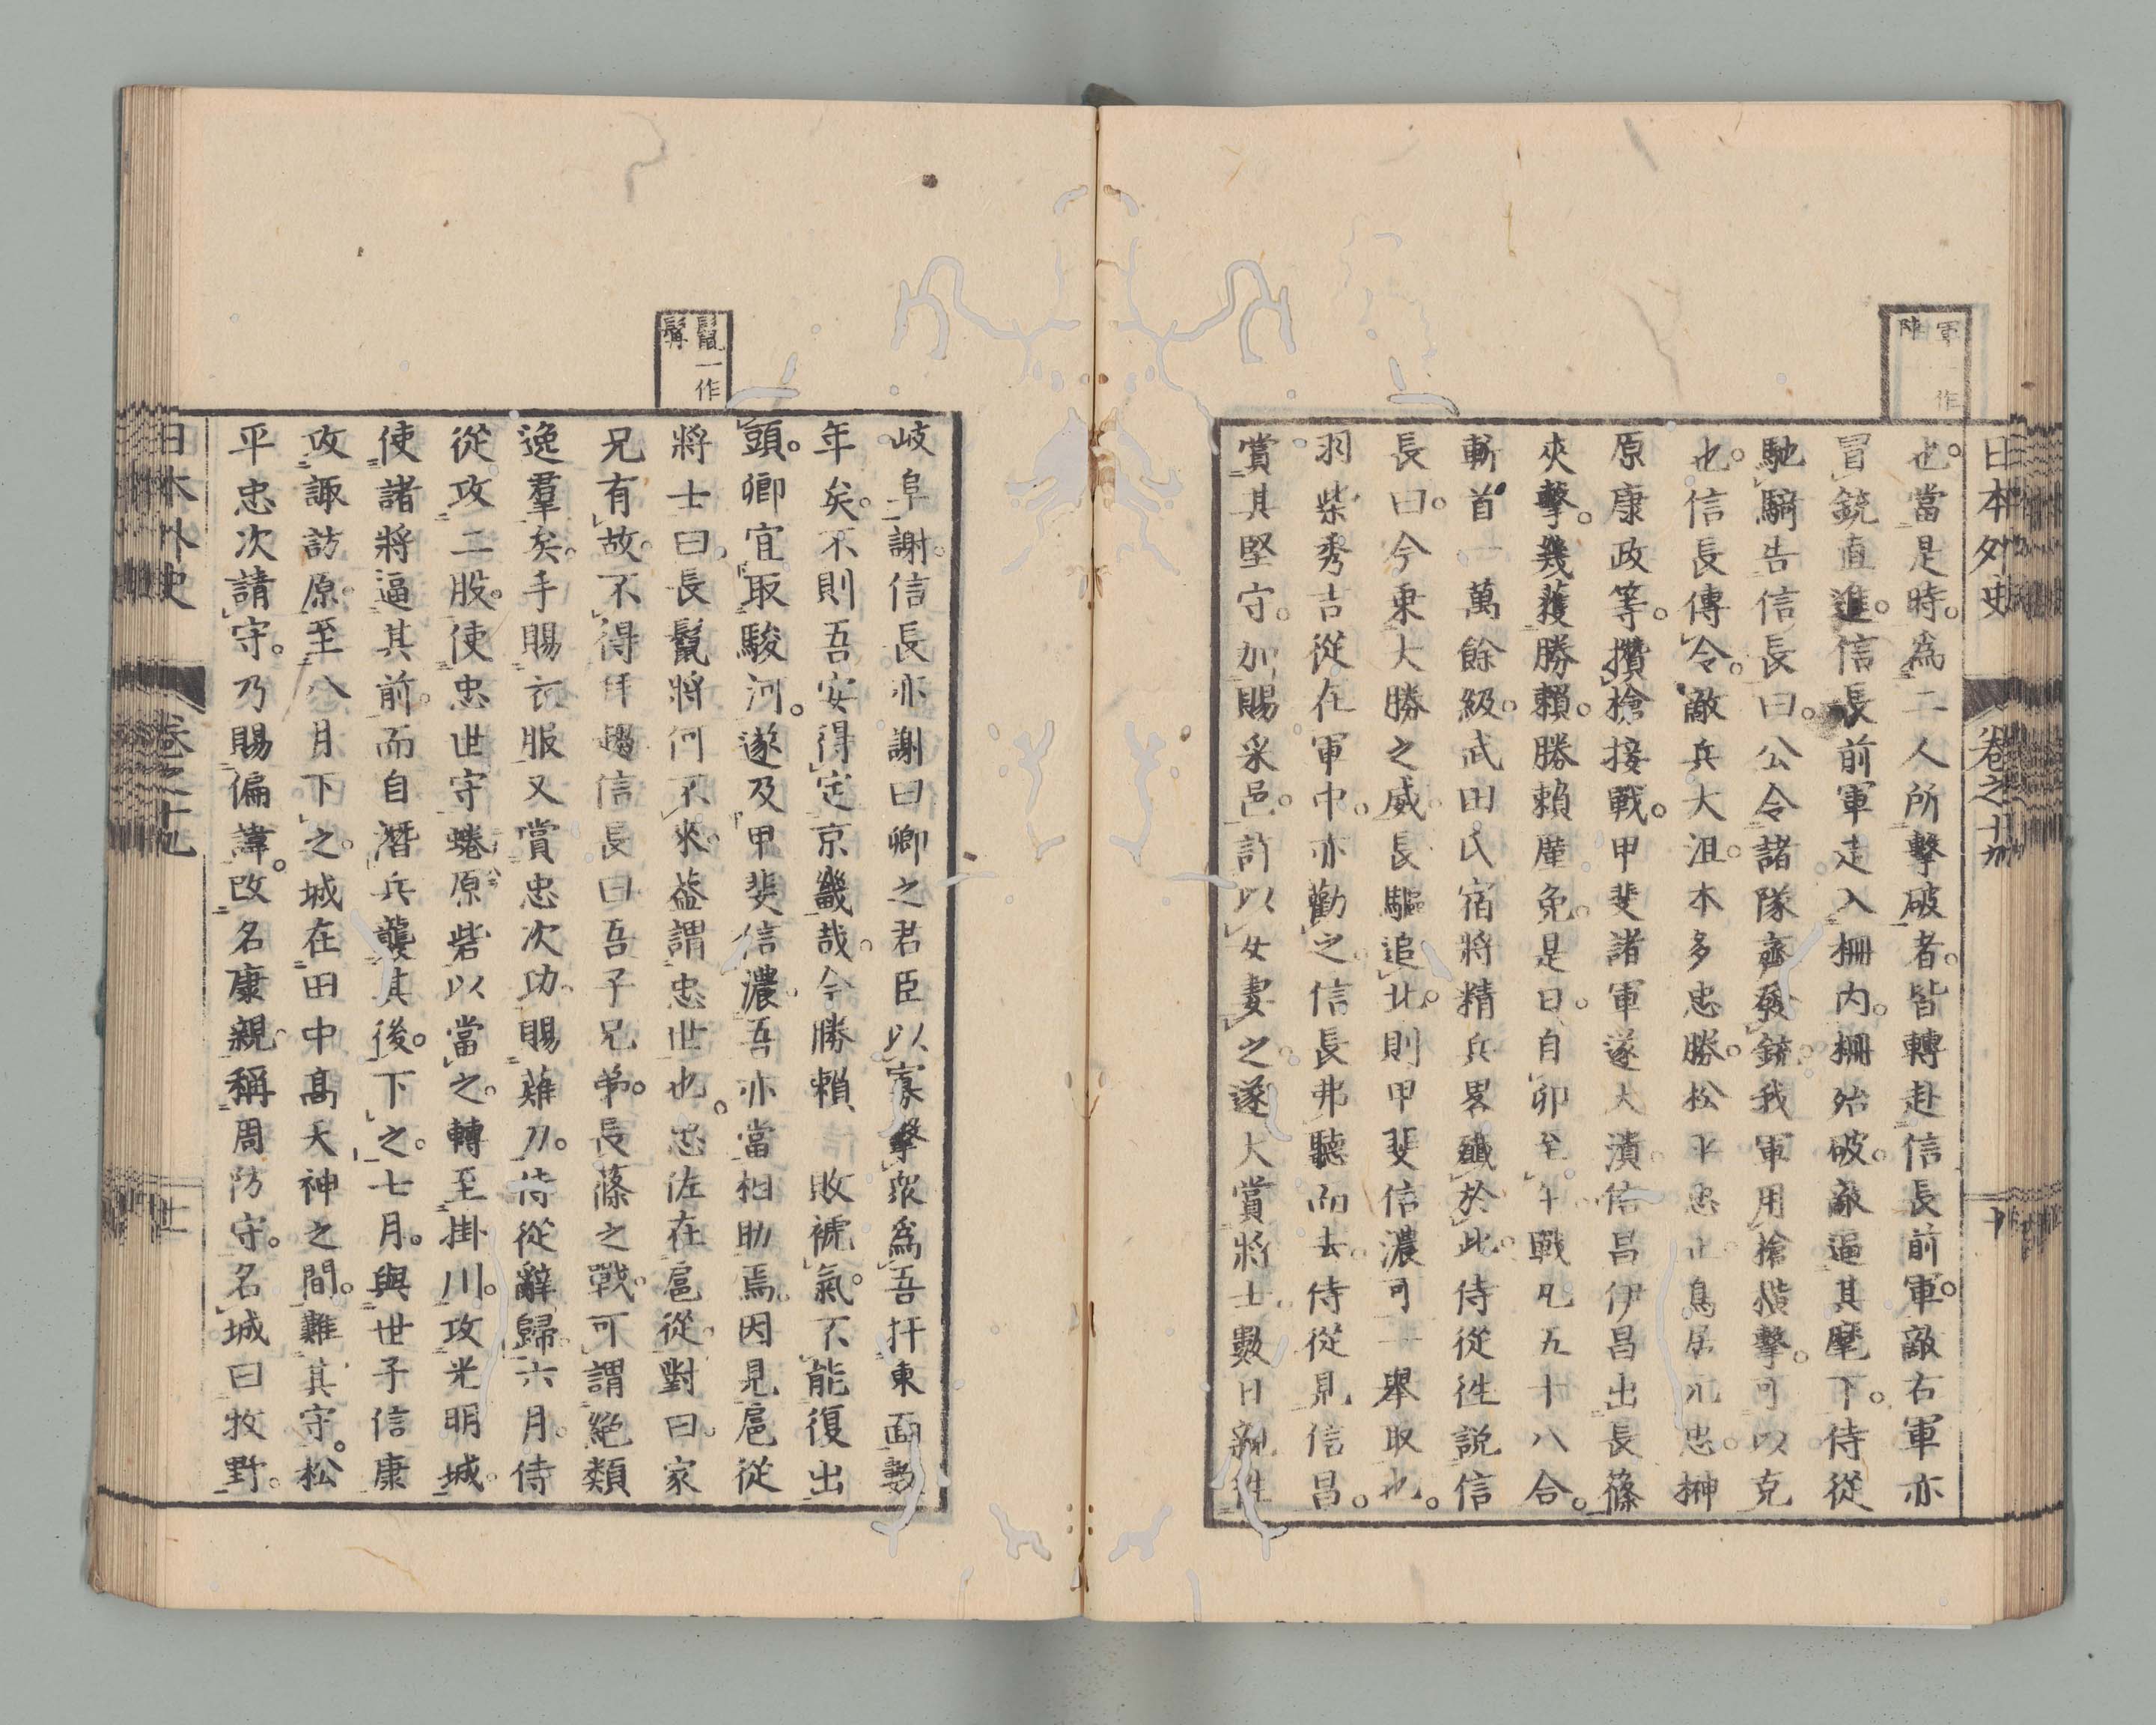 日本外史　卷之十九　十
軍一作
陣
也。當是時。爲二人所擊破者。皆轉赴信長前軍。敵右軍亦
冒銃直進。信長前軍走入柵内。柵殆破。敵逼其麾下。侍從
馳騎告信長曰。公令諸隊齊發銃。我軍用槍橫擊。可以克
也。信長傳令。敵兵大沮。本多忠勝。松平忠正。鳥居元忠。榊
原康政等。攢槍接戰。甲斐諸軍遂大潰。信昌伊昌出長篠
夾擊。幾獲勝賴。勝賴廑免。是日。自卯至午。戰凡五十八合。
斬首一萬餘級。武田氏宿將精兵畧殲於此。侍從徃説信
長曰。今乘大勝之威。長驅追北。則甲斐信濃可一舉取也。
羽柴秀吉從在軍中。亦勸之。信長弗聽而去。侍從見信昌。
賞其堅守。加賜采邑。許以女妻之。遂大賞將士。數日親徃
岐阜。謝信長亦謝曰卿之君臣以寡擊衆爲吾扞東面數
年矣。不則吾安得定京畿哉。今勝賴敗褫氣。不能復出
頭。卿宜取駿河。遂及甲斐信濃。吾亦當相助焉。因見扈從
將士曰。長鬣將何不來。蓋謂忠世也。忠佐在扈從。對曰。家
兄有故。不得拜趨信長曰吾子兄弟。長篠之戰。可謂絶類
逸羣矣。手賜衣服又賞忠次功。賜薙刀。侍從辭歸。六月。侍
從攻二股。使忠世守蜷原砦以當之。轉至掛川。攻光明城。
使諸將逼其前。而自潛兵襲其後。下之。七月。與世子信康
攻諏訪原。至八月下之。城在田中高天神之間。難其守。松
平忠次請守。乃賜偏諱。改名康親。稱周防守。名城曰牧野。
鬣一作
髯
日本外史　卷之十九　十一